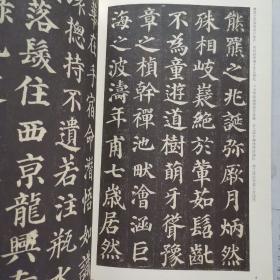 熊羆之兆誕彌厥月炳然
殊相岐嶷絕於葷茹髫齔
不為童遊道樹萌牙聳豫
章之楨幹禪池畎澮涵巨
海之波濤年甫七歲居然
華在手宿命潛悟如
總持不遺若注瓶水
落髮住西京龍興